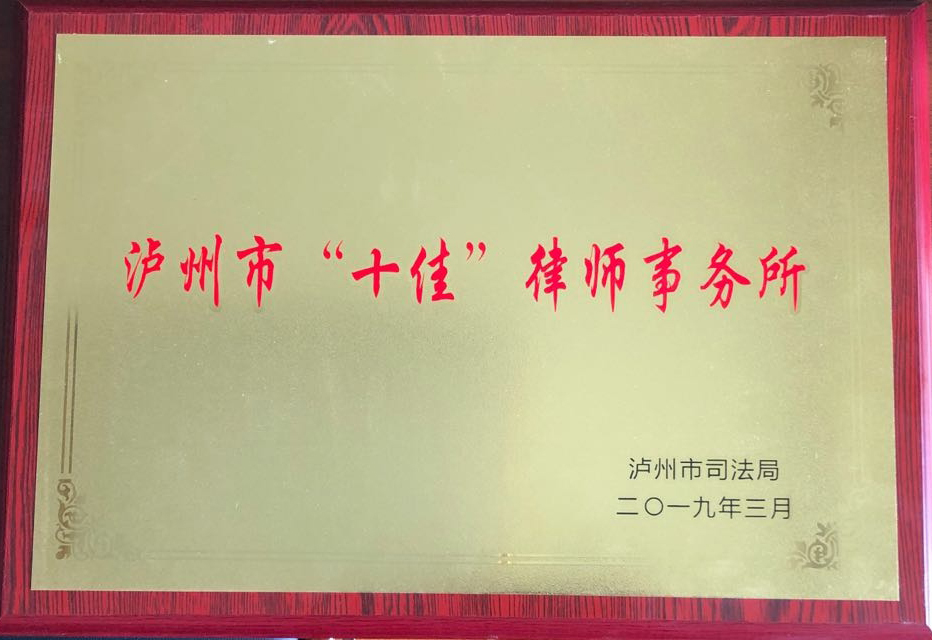 泸州市“十佳”律师事务所
泸州市司法局
二〇一九年三月